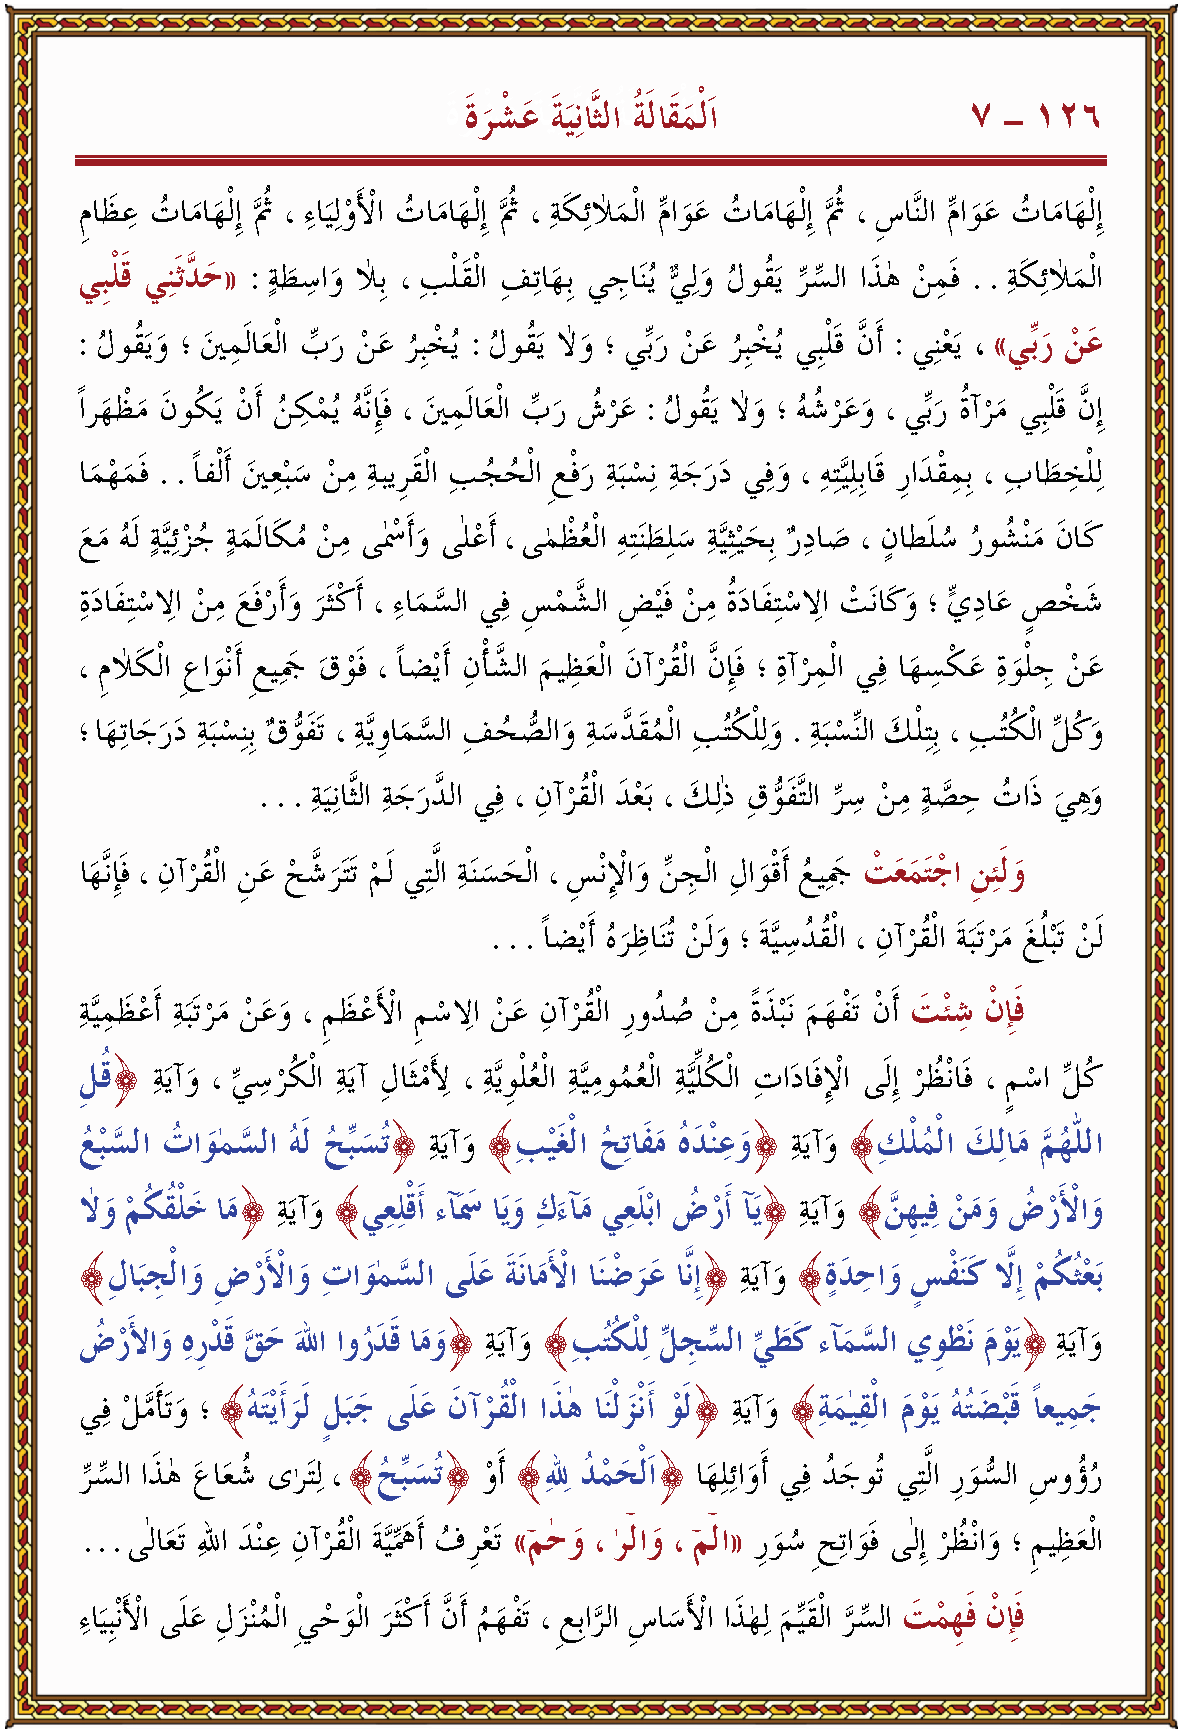 ١٢٦ – ٧ اَلْمَقَالَةُ الثَّانِيَةَ عَشْرَةَ
إِلْهَامَاتُ عَوَامِّ النَّاسِ ، ثُمَّ إِلْهَامَاتُ عَوَامِّ الْمَلٰائِكَةِ ، ثُمَّ إِلْهَامَاتُ الْأَوْلِيَاءِ ، ثُمَّ إِلْهَامَاتُ عِظَامِ
الْمَلٰائِكَةِ . . فَمِنْ هٰذَا السِّرِّ يَقُولُ وَلِيٌّ يُنَاجِي بِهَاتِفِ الْقَلْبِ ، بِلاٰ وَاسِطَةٍ : «حَدَّثَنِي قَلْبِي
عَنْ رَبِّي» ، يَعْنِي : أَنَّ قَلْبِي يُخْبِرُ عَنْ رَبِّي ؛ وَلاٰ يَقُولُ : يُخْبِرُ عَنْ رَبِّ الْعَالَمِينَ ؛ وَيَقُولُ :
إِنَّ قَلْبِي مَرْآةُ رَبِّي ، وَعَرْشُهُ ؛ وَلاٰ يَقُولُ : عَرْشُ رَبِّ الْعَالَمِينَ ، فَإِنَّهُ يُمْكِنُ أَنْ يَكُونَ مَظْهَراً
لِلْخِطَابِ ، بِمِقْدَارِ قَابِلِيَّتِهِ ، وَفِي دَرَجَةِ نِسْبَةِ رَفْعِ الْحُجُبِ الْقَرِيبَةِ مِنْ سَبْعِينَ أَلْفاً . . فَمَهْمَا
كَانَ مَنْشُورُ سُلَطَانٍ ، صَادِرٌ بِحَيْثِيَّةِ سَلِطَنَتِهِ الْعُظْمٰى ، أَعْلٰى وَأَسْمٰى مِنْ مُكَالَمَةٍ جُزْئِيَّةٍ لَهُ مَعَ
شَخْصٍ عَادِيٍّ ؛ وَكَانَتْ الِاسْتِفَادَةُ مِنْ فَيْضِ الشَّمْسِ فِي السَّمَاءِ ، أَكْثَرَ وَأَرْفَعَ مِنْ الِاسْتِفَادَةِ
عَنْ جِلْوَةِ عَكْسِهَا فِي الْمِرْآةِ ؛ فَإِنَّ الْقُرْآنَ الْعَظِيمَ الشَّأْنِ أَيْضاً ، فَوْقَ جَمِيعِ أَنْوَاعِ الْكَلاٰمِ ،
وَكُلِّ الْكُتُبِ ، بِتِلْكَ النِّسْبَةِ . وَلِلْكُتُبِ الْمُقَدَّسَةِ وَالصُّحُفِ السَّمَاوِيَّةِ ، تَفَوُّقٌ بِنِسْبَةِ دَرَجَاتِهَا ؛
وَهِيَ ذَاتُ حِصَّةٍ مِنْ سِرِّ التَّفَوُّقِ ذٰلِكَ ، بَعْدَ الْقُرْآنِ ، فِي الدَّرَجَةِ الثَّانِيَةِ . . .
وَلَئِنِ اجْتَمَعَتْ جَمِيعُ أَقْوَالِ الْجِنِّ وَالْإِنْسِ ، الْحَسَنَةِ الَّتِي لَمْ تَتَرَشَّحْ عَنِ الْقُرْآنِ ، فَإِنَّهَا
لَنْ تَبْلُغَ مَرْتَبَةَ الْقُرْآنِ ، الْقُدُسِيَّةَ ؛ وَلَنْ تُنَاظِرَهُ أَيْضاً . . .
فَإِنْ شِئْتَ أَنْ تَفْهَمَ نَبْذَةً مِنْ صُدُورِ الْقُرْآنِ عَنْ الِاسْمِ الْأَعْظَمِ ، وَعَنْ مَرْتَبَةِ أَعْظَمِيَّةِ
كُلِّ اسْمٍ ، فَانْظُرْ إِلَى الْإِفَادَاتِ الْكُلِّيَّةِ الْعُمُومِيَّةِ الْعُلْوِيَّةِ ، لِأَمْثَالِ آيَةِ الْكُرْسِيِّ ، وَآيَةِ ﴿قُلِ
اللّٰهُمَّ مَالِكَ الْمُلْكِ﴾ وَآيَةِ ﴿وَعِنْدَهُ مَفَاتِحُ الْغَيْبِ﴾ وَآيَةِ ﴿تُسَبِّحُ لَهُ السَّمٰوَاتُ السَّبْعُ
وَالْأَرْضُ وَمَنْ فِيهِنَّ﴾ وَآيَةِ ﴿يَآ أَرْضُ ابْلَعِي مَآءَكِ وَيَا سَمَآءُ أَقْلِعِي﴾ وَآيَةِ ﴿مَا خَلْقُكُمْ وَلاٰ
بَعْثُكُمْ اِلَّا كَنَفْسٍ وَاحِدَةٍ﴾ وَآيَةِ ﴿إِنَّا عَرَضْنَا الْأَمَانَةَ عَلَى السَّمٰوَاتِ وَالْأَرْضِ وَالْجِبَالِ﴾
وَآيَةِ ﴿يَوْمَ نَطْوِي السَّمَآءَ كَطَيِّ السِّجِلِّ لِلْكُتُبِ﴾ وَآيَةِ ﴿وَمَا قَدَرُوا اللهَ حَقَّ قَدْرِهِ وَالأَرْضُ
جَمِيعاً قَبْضَتُهُ يَوْمَ الْقِيٰمَةِ﴾ وَآيَةِ ﴿لَوْ أَنْزَلْنَا هٰذَا الْقُرْآنَ عَلَى جَبَلٍ لَرَأَيْتَهُ﴾ ؛ وَتَأَمَّلْ فِي
رُؤُوسِ السُّوَرِ الَّتِي تُوجَدُ فِي أَوَائِلِهَا ﴿اَلْحَمْدُ لِلهِ﴾ أَوْ ﴿تُسَبِّحُ﴾ ، لِتَرٰى شُعَاعَ هٰذَا السِّرِّ
الْعَظِيمِ ؛ وَانْظُرْ إِلٰى فَوَاتِحِ سُوَرِ «الٓمٓ ، وَالٓرٰ ، وَحٰمٓ» تَعْرِفُ أَهَمِّيَّةَ الْقُرْآنِ عِنْدَ اللهِ تَعَالٰى . . .
فَإِنْ فَهِمْتَ السِّرَّ الْقَيِّمَ لِهٰذَا الْأَسَاسِ الرَّابِعِ ، تَفْهَمُ أَنَّ أَكْثَرَ الْوَحْيِ الْمُنْزَلِ عَلَى الْأَنْبِيَاءِ